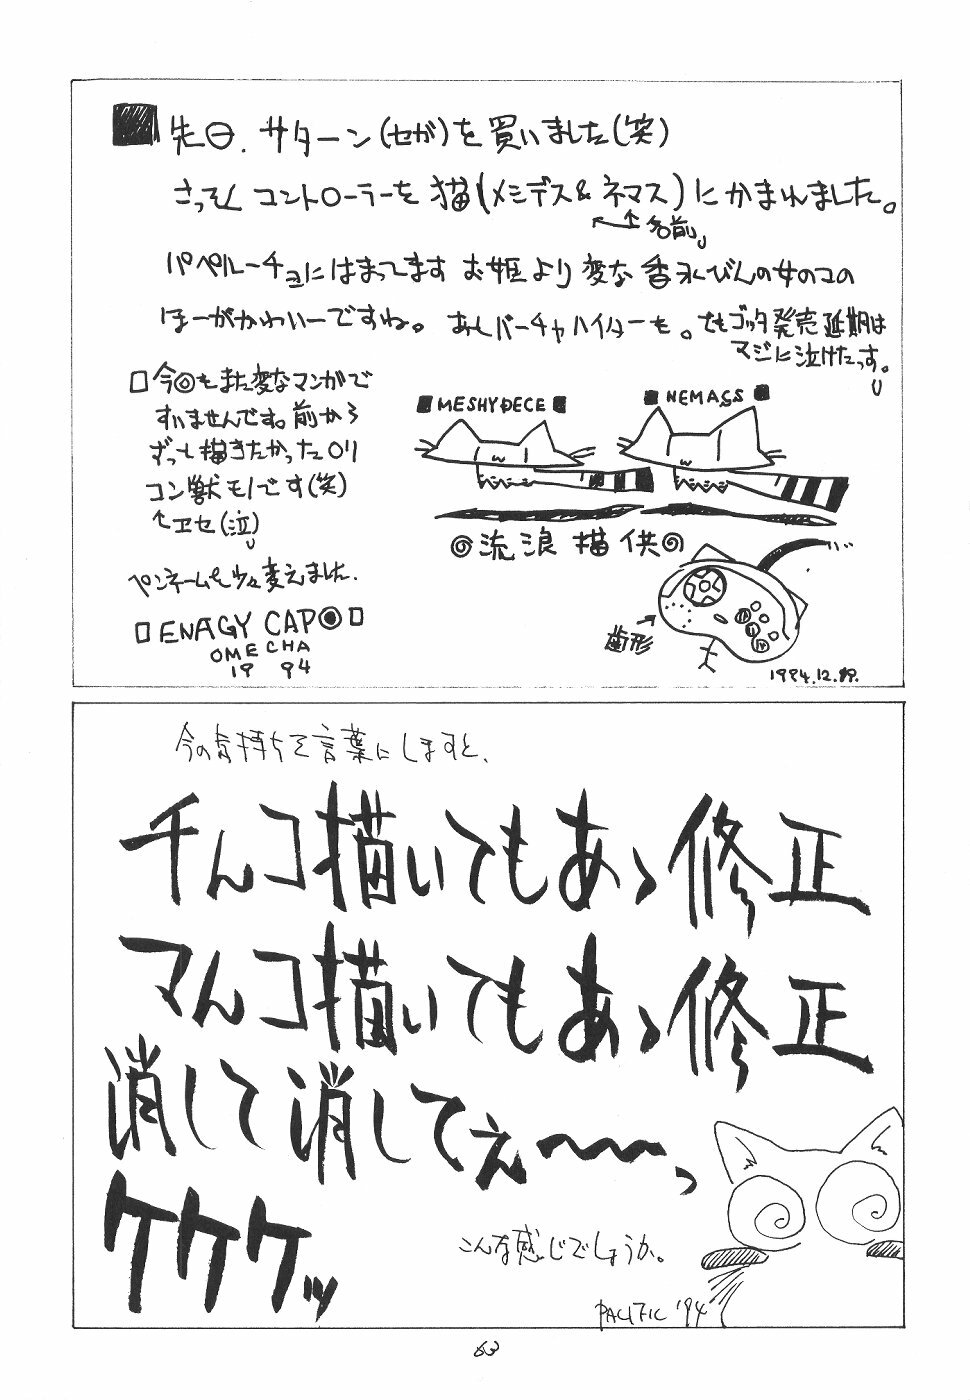 先日、サターン(セガ)を買いました(笑)
さっそくコントローラーを猫(メシデス&ネマス)にかまれました。
名前
パペルーチョにはまってます お姫より変な香水びんの女のコの
ほーがかわいーですね。あとバーチャハイパーも。でもゴッタ発売延期は
マジに泣けたっす。
今回もまた変なマンガで
すいませんです。前から
ずっと描きたかったロリ
コン獣モノです(笑)
エセ(泣)
ペンネームも少々変えました。
ENAGY CAP
OMECHA
1994
MESHYDECE
NEMACS
流浪描供
歯形
1994.12.
今の気持ちを言葉にしますと、
チんコ描いてもあゝ修正
マんコ描いてもあゝ修正
消して消してぇ〜〜っ
ケケケッ
こんな感じでしょうか。
PACIFIC '94
63